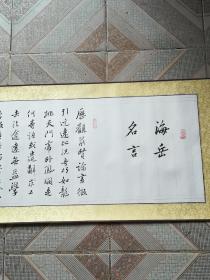 海岳
名言
歷觀前賢論書徵
引迂遠比況奇巧如龍
跳天門虎卧鳳闕是
何等語或遣辭求工
去法逾遠無益學